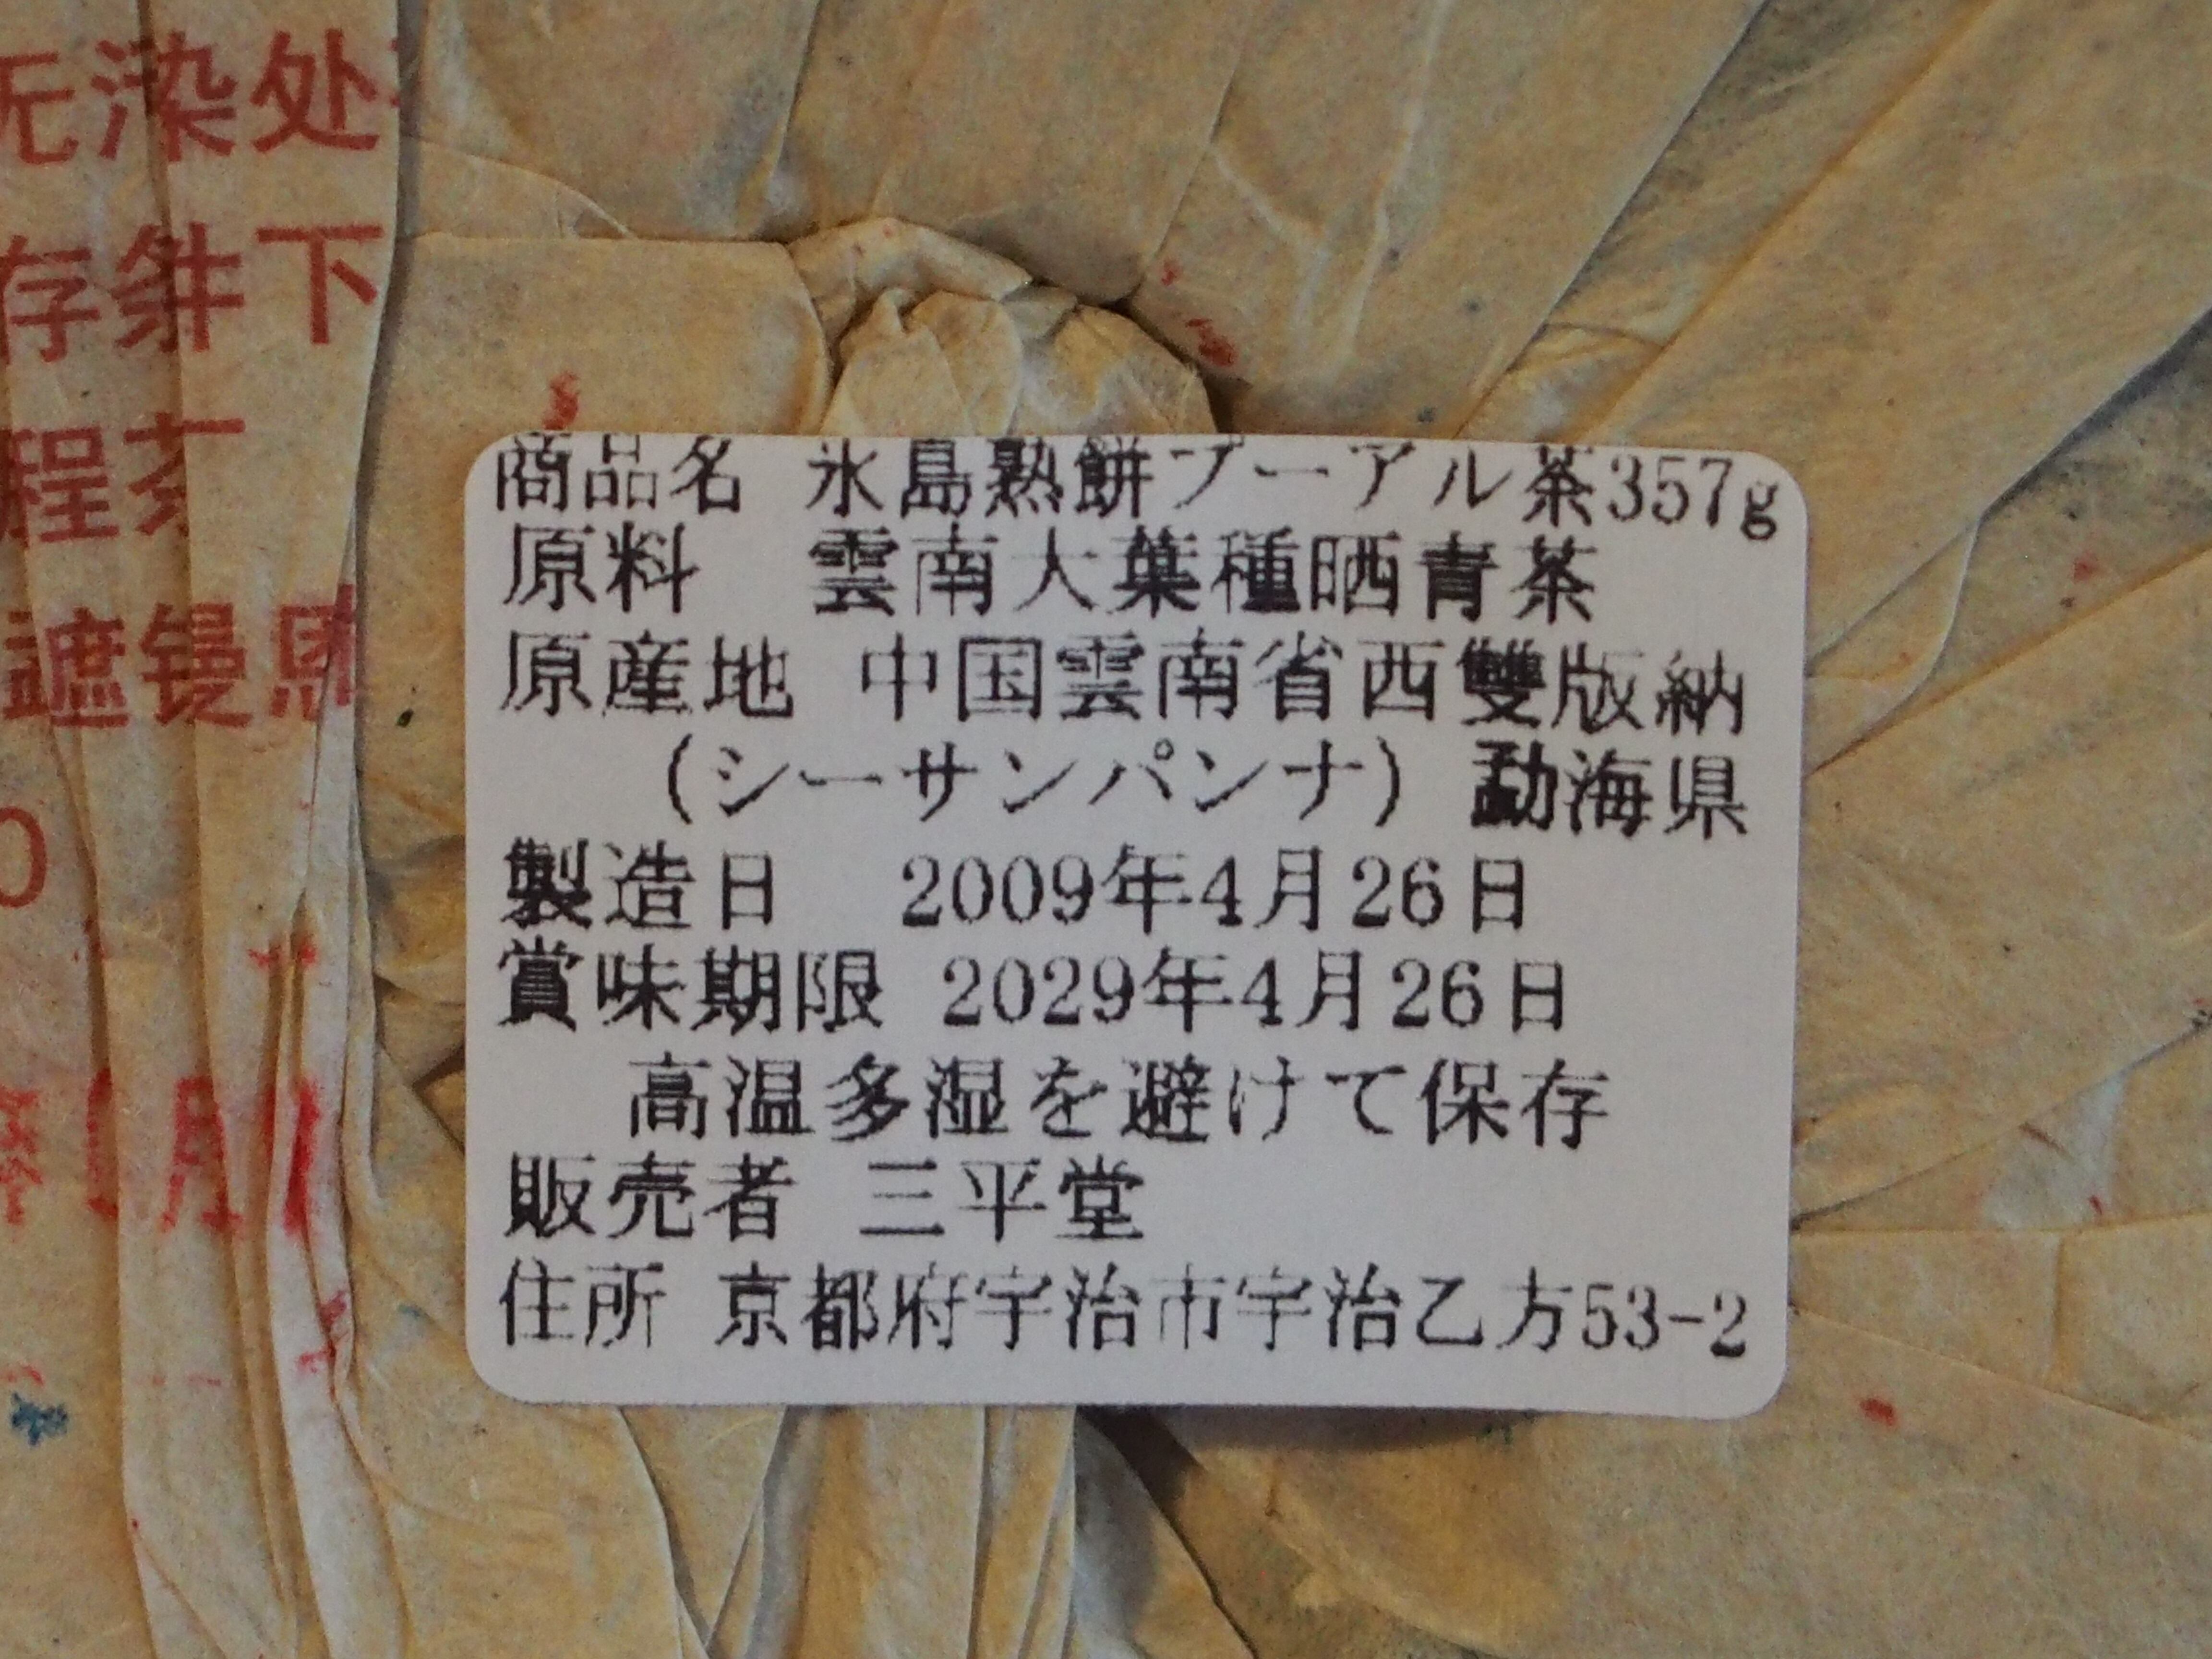 无染处
存件下
程茶
遮慢恩
0
月
商品名 氷島熟餅プーアル茶357g
原料 雲南大葉種晒青茶
原産地 中国雲南省西雙版納
(シーサンパンナ) 勐海県
製造日 2009年4月26日
賞味期限 2029年4月26日
高温多湿を避けて保存
販売者 三平堂
住所 京都府宇治市宇治乙方53-2